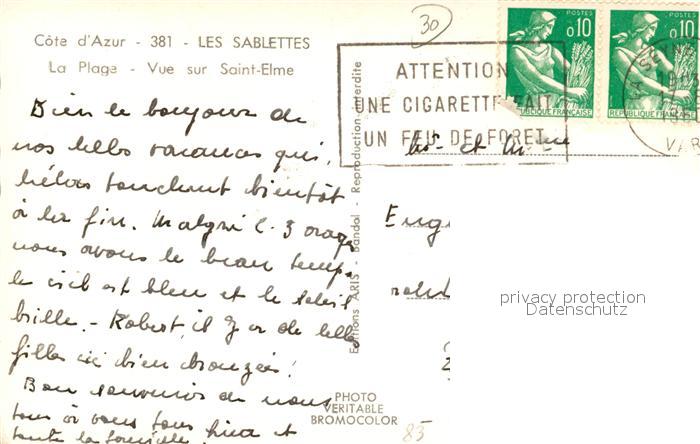 30
Côte d'Azur - 381 - LES SABLETTES
La Plage - Vue sur Saint-Elme
POSTES
0,10
REPUBLIQUE FRANÇAISE
POSTES
0,10
REPUBLIQUE FRANÇAISE
ATTENTION
UNE CIGARETTE FAIT
UN FEU DE FORET
VAR
Bien le bonjour de
nos belles vacances qui,
hélas touchent bientôt
à la fin. Malgré 2.3 orages
nous avons le beau temps.
le ciel est bleu et le soleil
brille. - Robert, il y a de belles
filles ici bien bronzées!
Bon souvenir de nous
tous à vous tous
toute la famille.
Mr et Mme
Eug
Editions ARIS - Bandol - Reproduction interdite
PHOTO
VERITABLE
BROMOCOLOR
85
privacy protection
Datenschutz